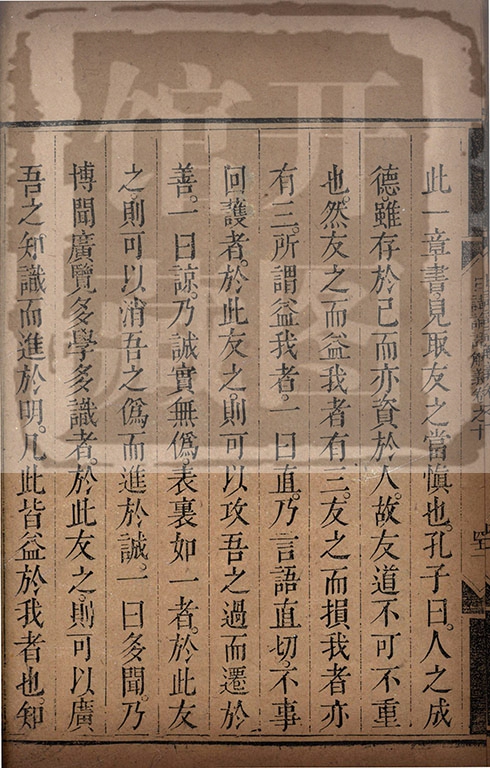 此一章書見取友之當慎也。孔子曰。人之成
德。雖存於己而亦資於人。故友道不可不重
也。然友之而益我者有三。友之而損我者亦
有三。所謂益我者。一曰直。乃言語直切。不事
回護者。於此友之。則可以攻吾之過而遷於
善。一曰諒。乃誠實無偽表裏如一者。於此友
之。則可以消吾之偽而進於誠。一曰多聞。乃
博聞廣覽多學多識者。於此友之。則可以廣
吾之知識而進於明。凡此皆益於我者也。知